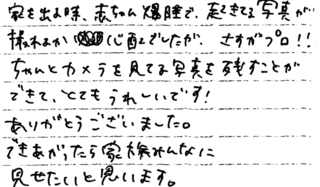 家を出る時、赤ちゃん爆睡で、起きてる写真が
撮れるか心配でしたが、さすがプロ!!
ちゃんとカメラを見てる写真を残すことが
できて、とてもうれしいです!
ありがとうございました。
できあがったら家族みんなに
見せたいと思います。